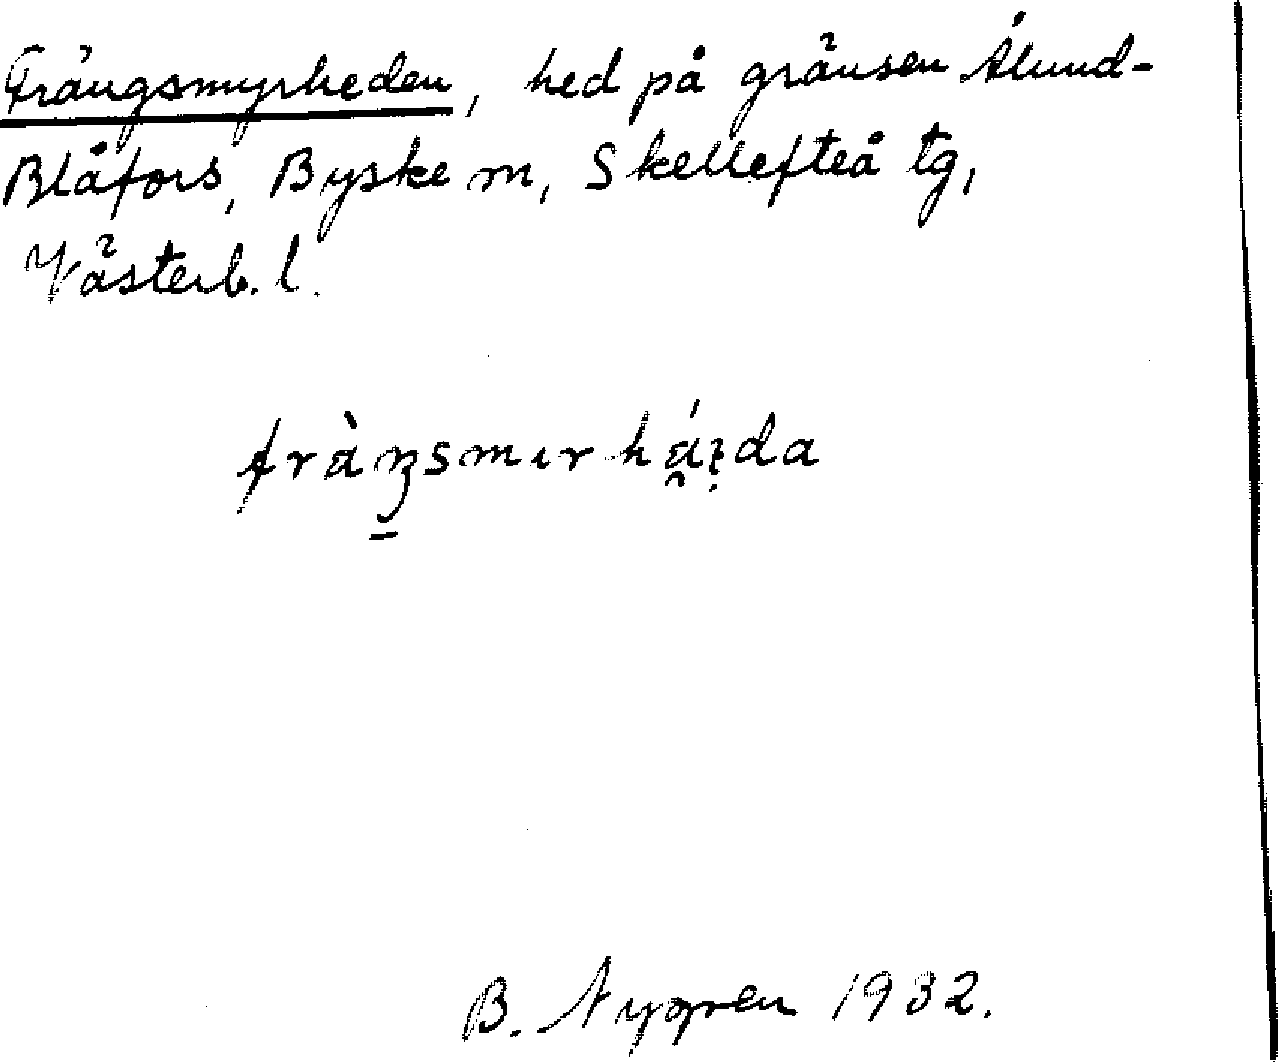 Frängsmyrheden, hed på gränsen Ålund-
Blåfors, Byske m, Skellefteå tg,
Västerb. l.
B. Nygren 1932.